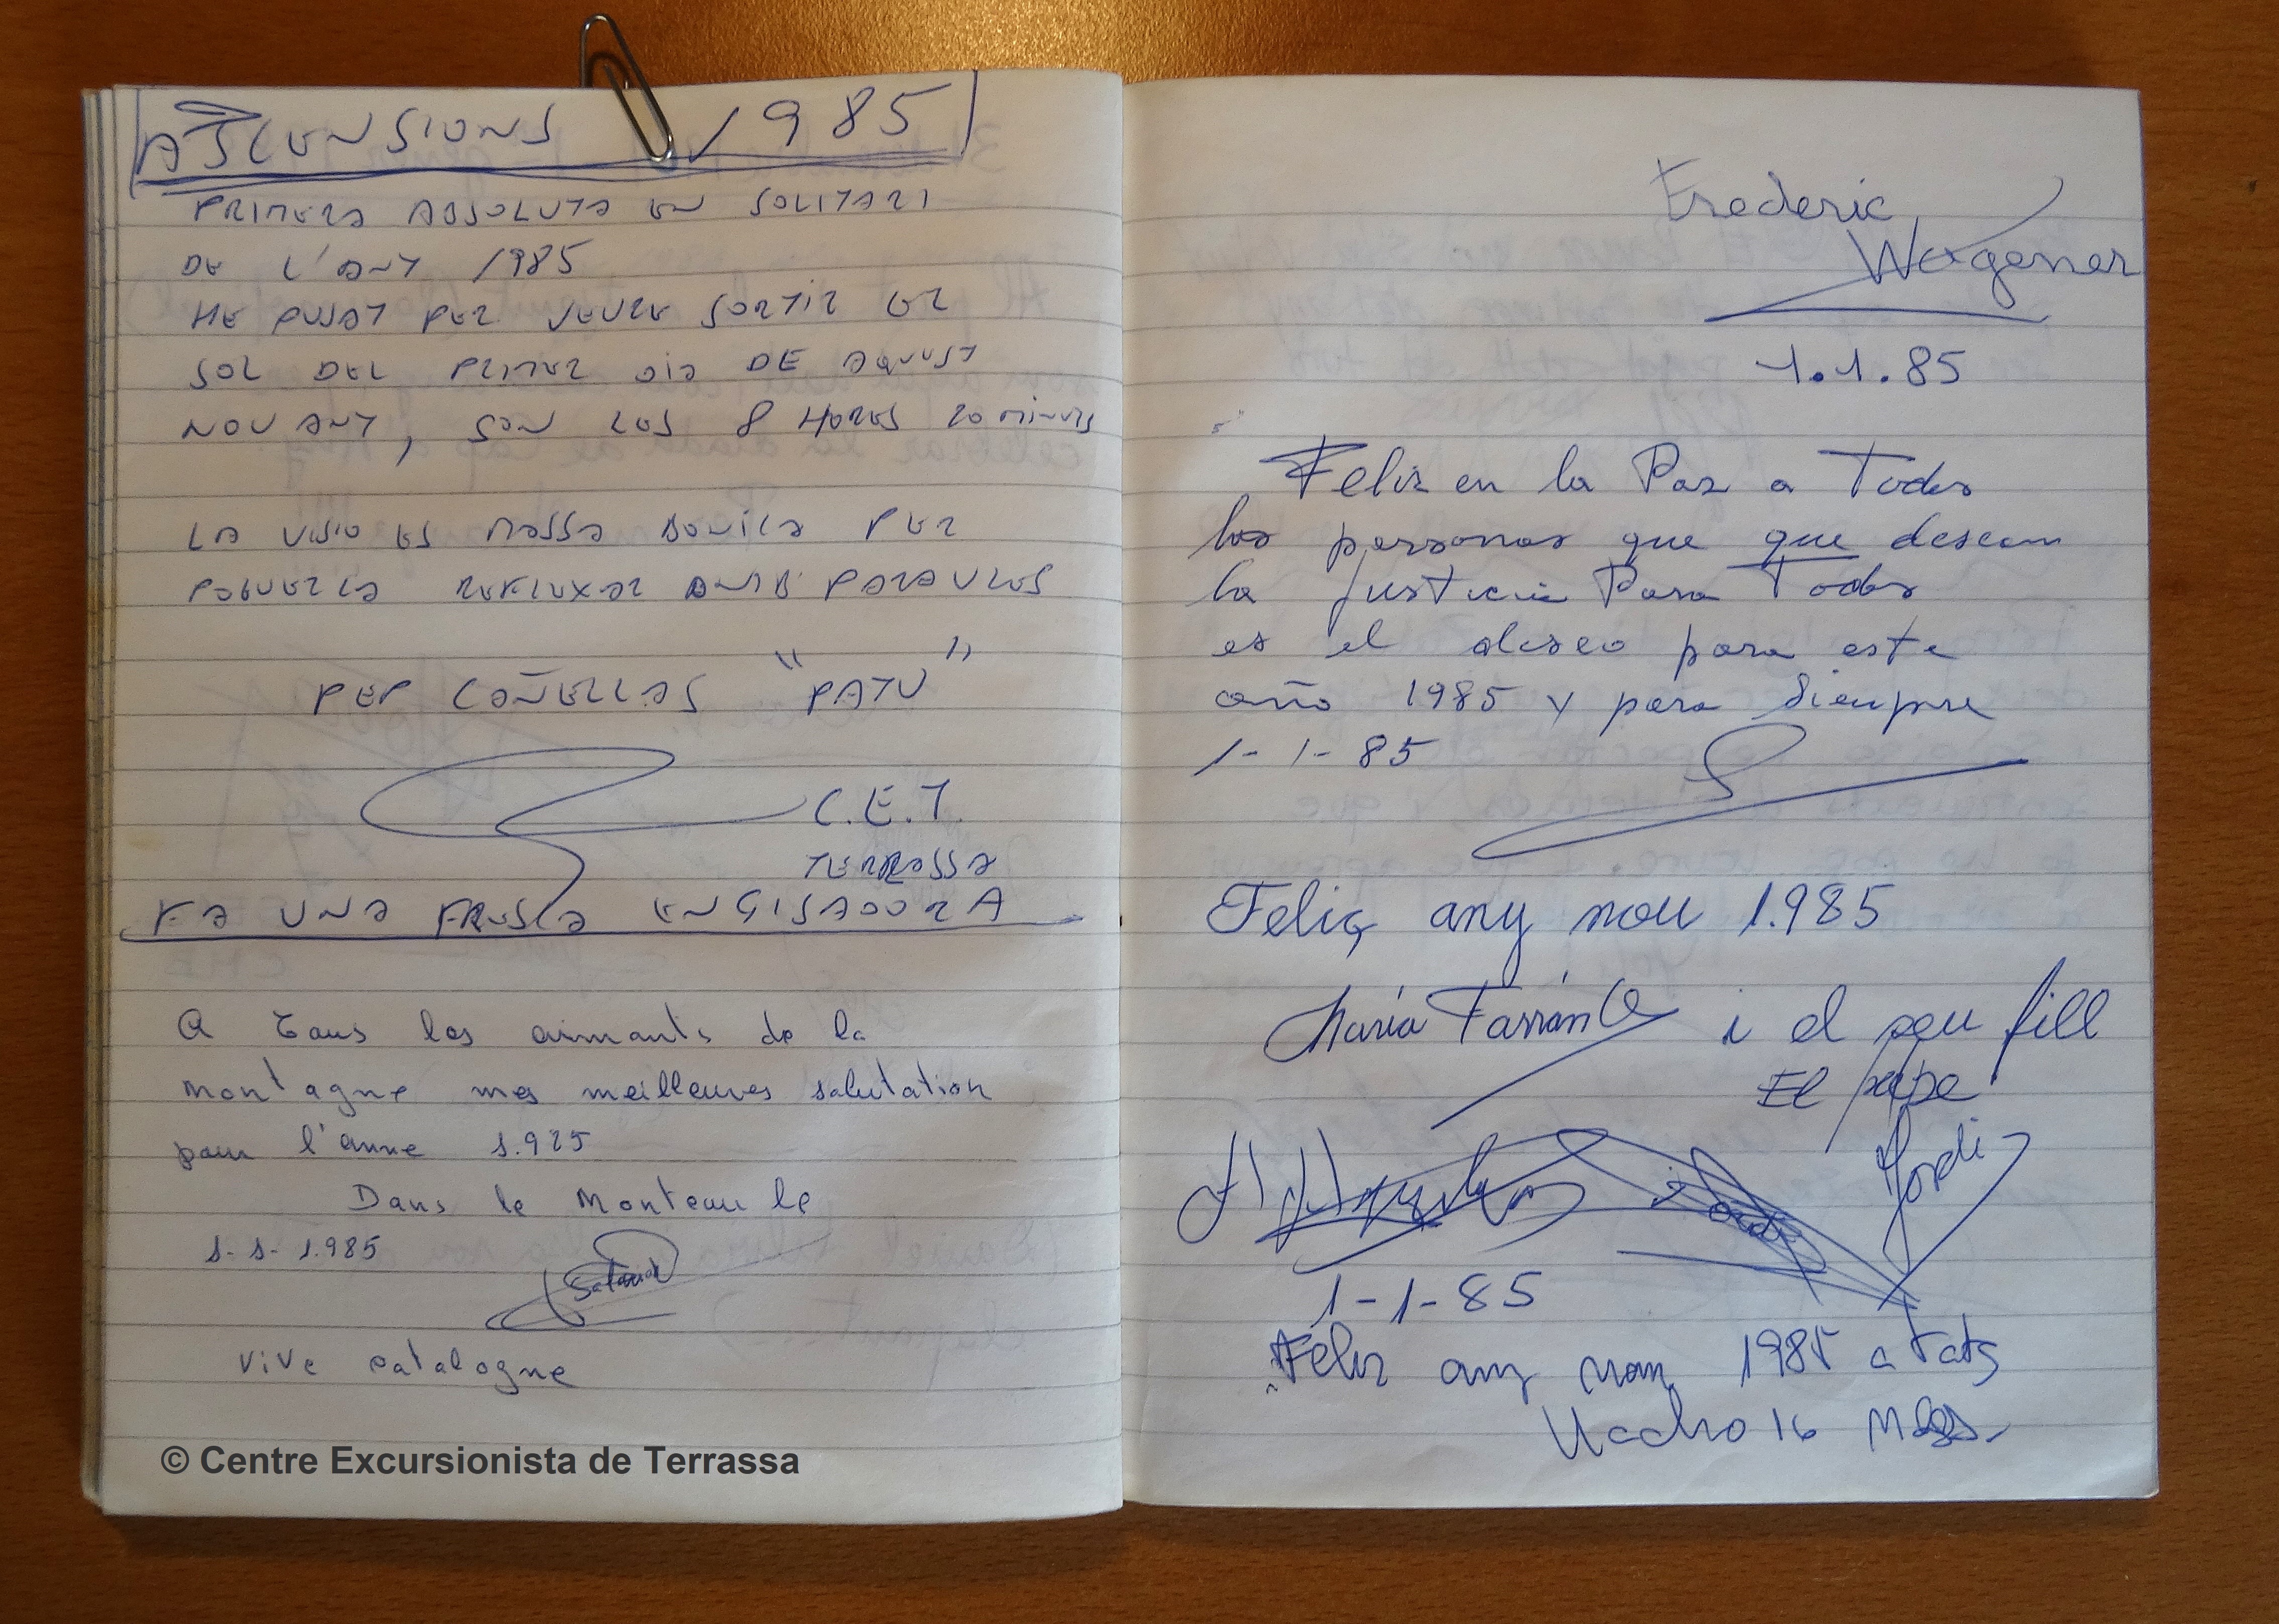 ASCENSIONS 1985
PRIMERA ABSOLUTA EN SOLITARI
DE L'ANY 1985
HE PUJAT PER VEURE SORTIR EL
SOL DEL PRIMER DIA DE AQUEST
NOU ANY, SON LES 8 HORES 20 MINUTS
LA VISIO ES MASSA BONICA PER
POGUERLA REFLEXAR AMB PARAULES
PEP CAÑELLAS "PATU"
C.E.T.
TERRASSA
FA UNA FRESCA ENGISADORA
A tous les aimants de la
montagne mes meilleures salutation
pour l'anne 1.985
Dans le Montcau le
1-1-1.985
Vive catalogne
© Centre Excursionista de Terrassa
Frederic
Wagener
1.1.85
Feliz en la Paz a Todos
las personas que que desean
la Justicia Para Todos
es el deseo para este
año 1985 y para siempre
1-1-85
Feliç any nou 1.985
María Farrán i el seu fill
El pepe
Jordi
1-1-85
Feliz any nou 1985 a tots
Nacho 16